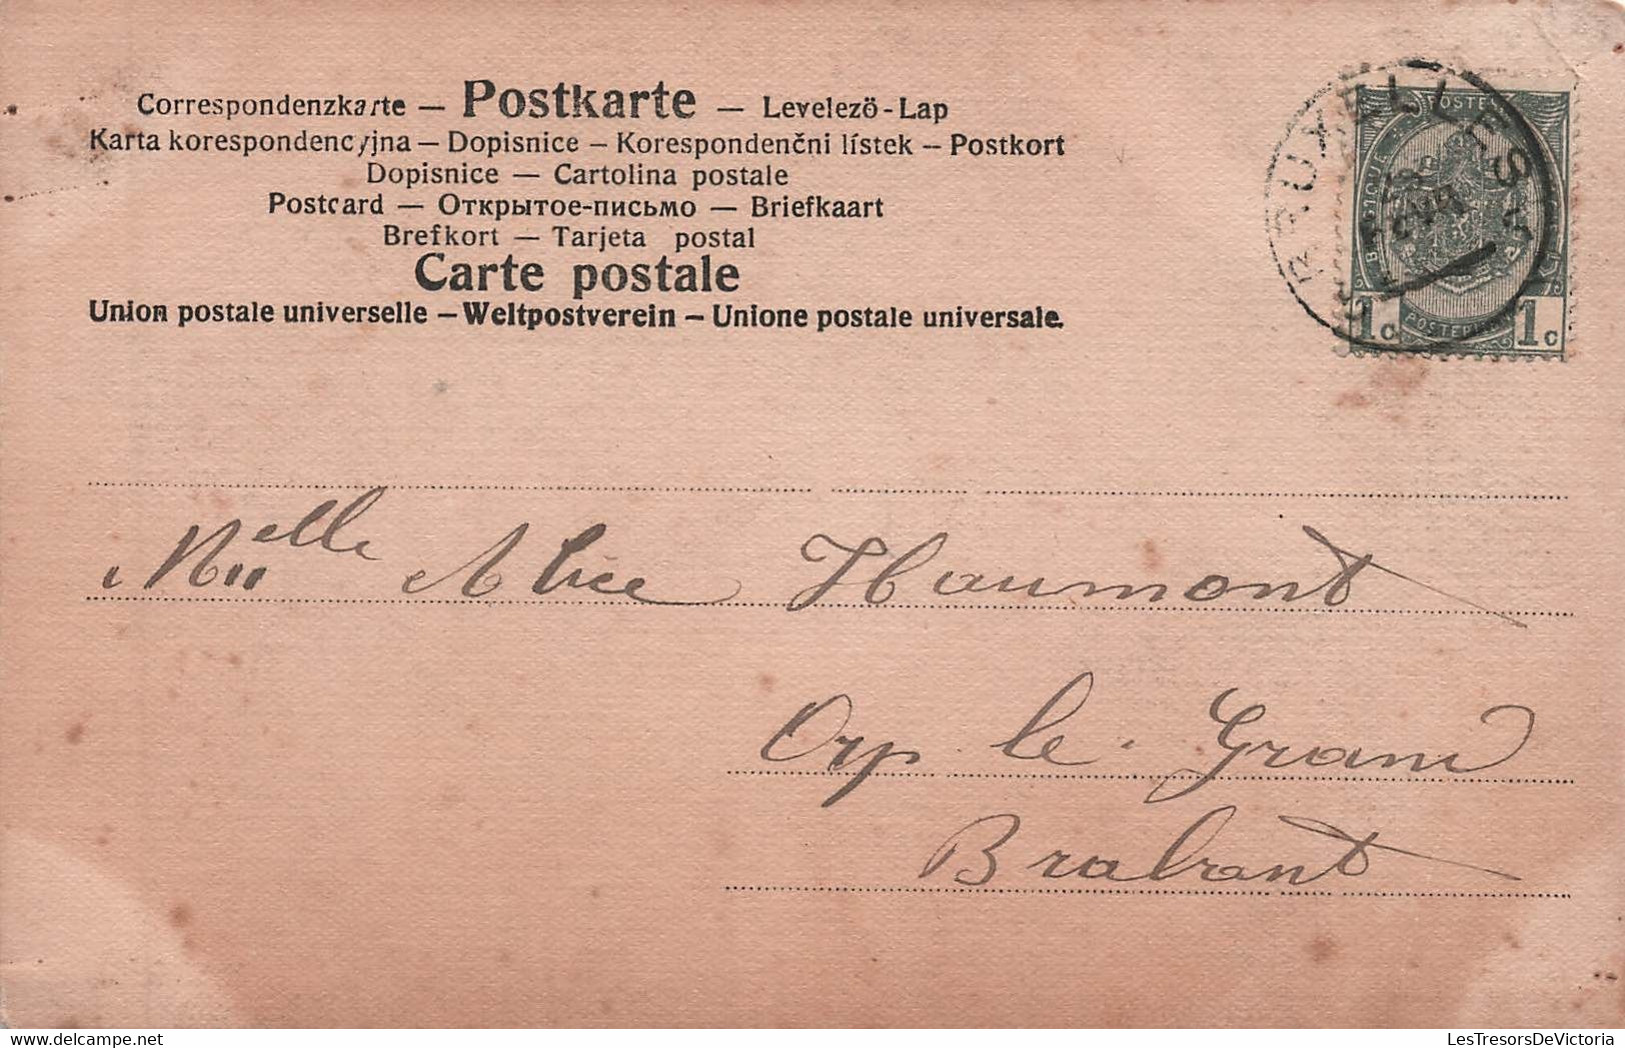 Correspondenzkarte — Postkarte — Levelező-Lap
Karta korespondencyjna — Dopisnice — Korespondenční lístek — Postkort
Dopisnice — Cartolina postale
Postcard — Открытое-письмо — Briefkaart
Brefkort — Tarjeta postal
Carte postale
Union postale universelle — Weltpostverein — Unione postale universale.
BRUXELLES
POSTES
BELGIQUE
1c 1c
Melle Alice Haumont
Orp le Grand
Brabant
LesTresorsDeVictoria